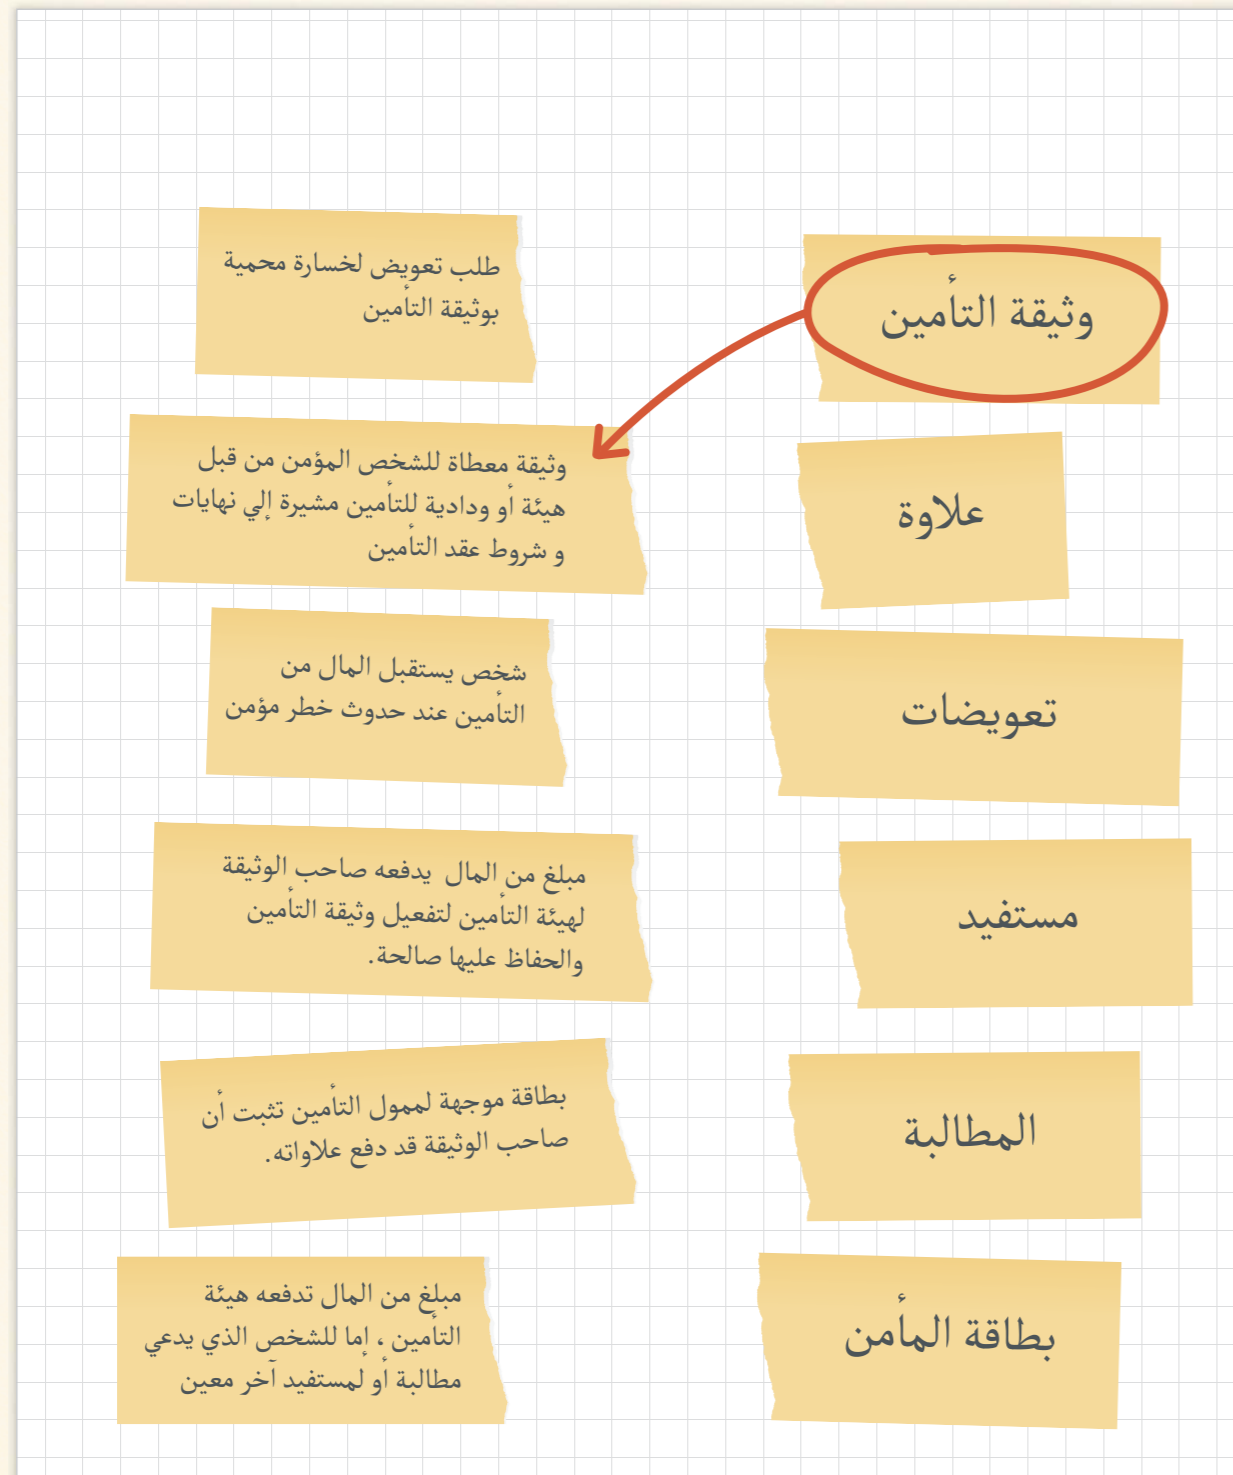 وثيقة التأمين
علاوة
تعويضات
مستفيد
المطالبة
بطاقة المأمن
طلب تعويض لخسارة محمية
بوثيقة التأمين
وثيقة معطاة للشخص المؤمن من قبل
هيئة أو ودادية للتأمين مشيرة إلي نهايات
و شروط عقد التأمين
شخص يستقبل المال من
التأمين عند حدوث خطر مؤمن
مبلغ من المال يدفعه صاحب الوثيقة
لهيئة التأمين لتفعيل وثيقة التأمين
والحفاظ عليها صالحة.
بطاقة موجهة لممول التأمين تثبت أن
صاحب الوثيقة قد دفع علاواته.
مبلغ من المال تدفعه هيئة
التأمين ، إما للشخص الذي يدعي
مطالبة أو لمستفيد آخر معين